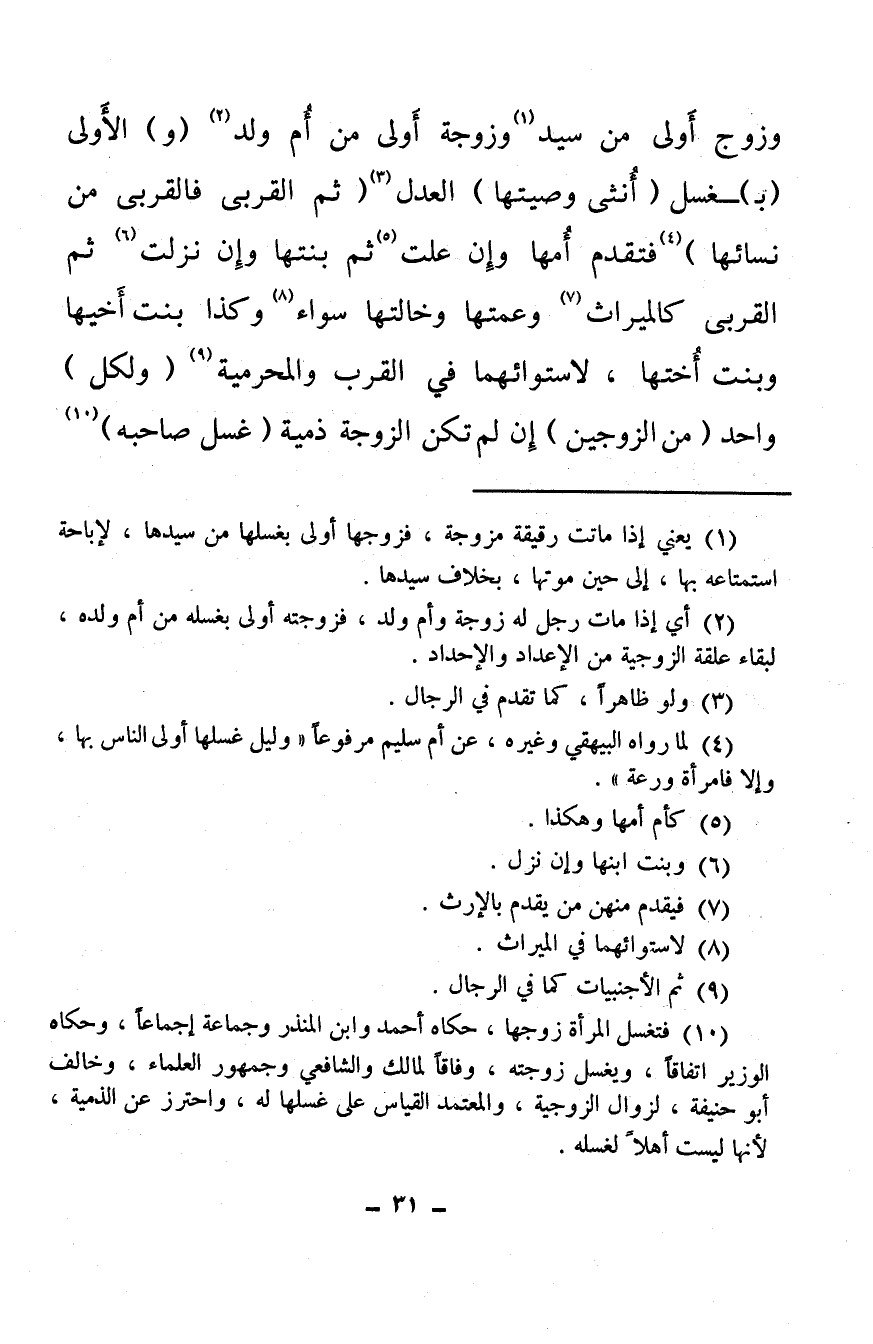 وزوج أَولى من سيد(١) وزوجة أَولى من أُم ولد(٢) (و) الأَولى
(بـ)ـغسل ( أُنثى وصيتها ) العدل(٣) ( ثم القربى فالقربى من
نسائها )(٤) فتقدم أُمها وإن علت(٥) ثم بنتها وإن نزلت(٦) ثم
القربى كالميراث(٧) وعمتها وخالتها سواء(٨) وكذا بنت أَخيها
وبنت أُختها ، لاستوائهما في القرب والمحرمية(٩) ( ولكل )
واحد ( من الزوجين ) إن لم تكن الزوجة ذمية ( غسل صاحبه )(١٠)
(١) يعني إذا ماتت رقيقة مزوجة ، فزوجها أولى بغسلها من سيدها ، لإباحة
استمتاعه بها ، إلى حين موتها ، بخلاف سيدها .
(٢) أي إذا مات رجل له زوجة وأم ولد ، فزوجته أولى بغسله من أم ولده ،
لبقاء علقة الزوجية من الإعداد والإحداد .
(٣) ولو ظاهراً ، كما تقدم في الرجال .
(٤) لما رواه البيهقي وغيره ، عن أم سليم مرفوعاً « وليل غسلها أولى الناس بها ،
وإلا فامرأة ورعة » .
(٥) كأم أمها وهكذا .
(٦) وبنت ابنها وإن نزل .
(٧) فيقدم منهن من يقدم بالإرث .
(٨) لاستوائهما في الميراث .
(٩) ثم الأجنبيات كما في الرجال .
(١٠) فتغسل المرأة زوجها ، حكاه أحمد وابن المنذر وجماعة إجماعاً ، وحكاه
الوزير اتفاقاً ، ويغسل زوجته ، وفاقاً لمالك والشافعي وجمهور العلماء ، وخالف
أبو حنيفة ، لزوال الزوجية ، والمعتمد القياس على غسلها له ، واحترز عن الذمية ،
لأنها ليست أهلاً لغسله .
– ٣١ –